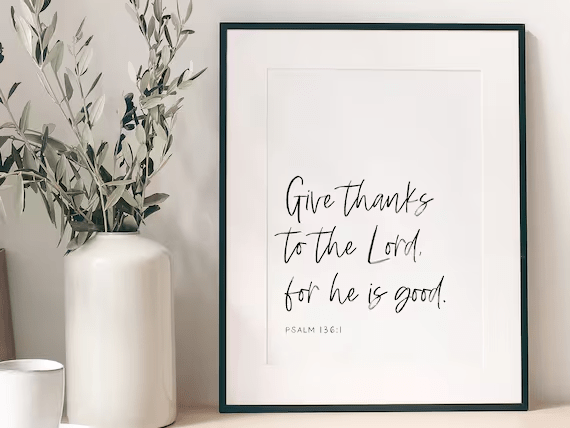 Give thanks
to the Lord,
for he is good.
PSALM 136:1